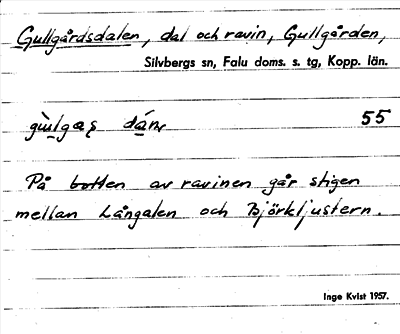 Gullgårdsdalen, dal och ravin, Gullgården,
Silvbergs sn, Falu doms. s. tg, Kopp. län.
55
På botten av ravinen går stigen
mellan Långalen och Björkljustern.
Inge Kvist 1957.